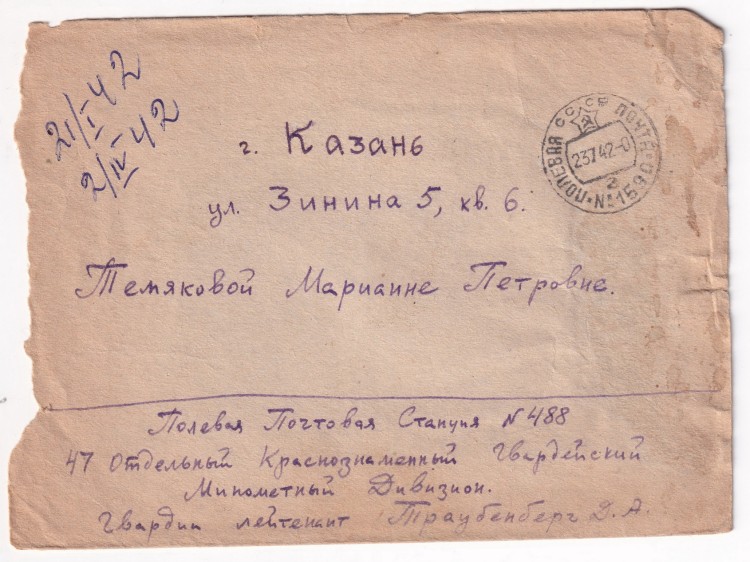 21/I 42
2/IV 42
г. Казань
ул. Зинина 5, кв. 6.
Темяковой Марианне Петровне.
ПОЛЕВАЯ ПОЧТА
СССР
23 7 42
Полевая Почтовая Станция N 488
47 Отдельный Краснознаменный Гвардейский
Минометный Дивизион.
Гвардии лейтенант Траубенберг Д. А.